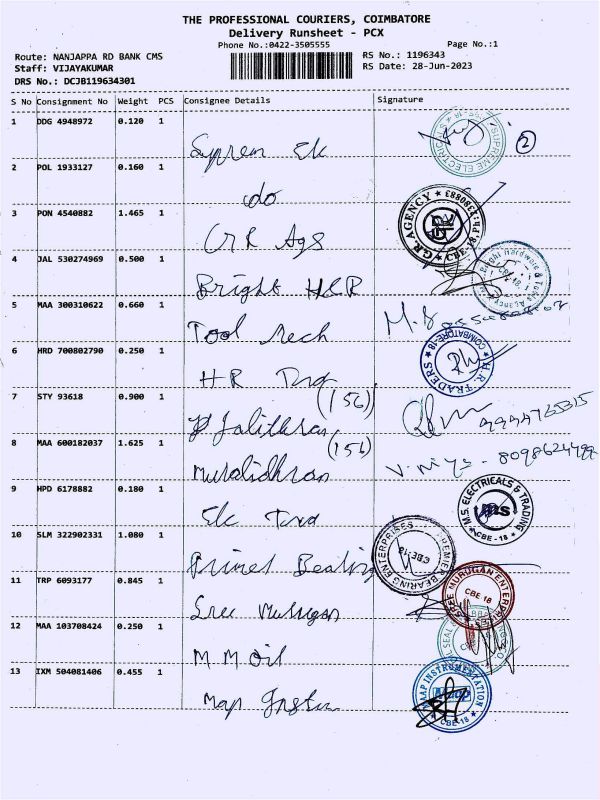 THE PROFESSIONAL COURIERS, COIMBATORE
Delivery Runsheet - PCX
Phone No.:0422-3505555
Page No.:1
Route: NANJAPPA RD BANK CMS
Staff: VIJAYAKUMAR
DRS No.: DCJB119634301
RS No.: 1196343
RS Date: 28-Jun-2023
S No Consignment No Weight PCS Consignee Details Signature
1 DDG 4948972 0.120 1
Suprem Elc
SUPREME ELECTRICALS
2
2 POL 1933127 0.160 1
do
3 PON 4540882 1.465 1
G R Ags
G.R. AGENCY
4 JAL 530274969 0.500 1
Bright H&R
Bright Hardware & Tools Agency
5 MAA 300310622 0.660 1
Tool Tech
6 HRD 700802790 0.250 1
HR Trd
H.R. TRADERS COIMBATORE-18
7 STY 93618 0.900 1
(156)
Lalithran
8 MAA 600182037 1.625 1
(156)
Muralidhran
8098624499
9 HPD 6178882 0.180 1
Elc Trd
M.S. ELECTRICALS & TRADING
CBE - 18
10 SLM 322902331 1.080 1
Primer Bearing
PREMIER BEARING ENTERPRISES
CBE-18
11 TRP 6093177 0.845 1
Sree Murugan
SREE MURUGAN ENTERPRISES
CBE 18
12 MAA 103708424 0.250 1
M M Oil
13 IXM 504081406 0.455 1
Map Instu
MAAP INSTRUMENTATION
CBE-18